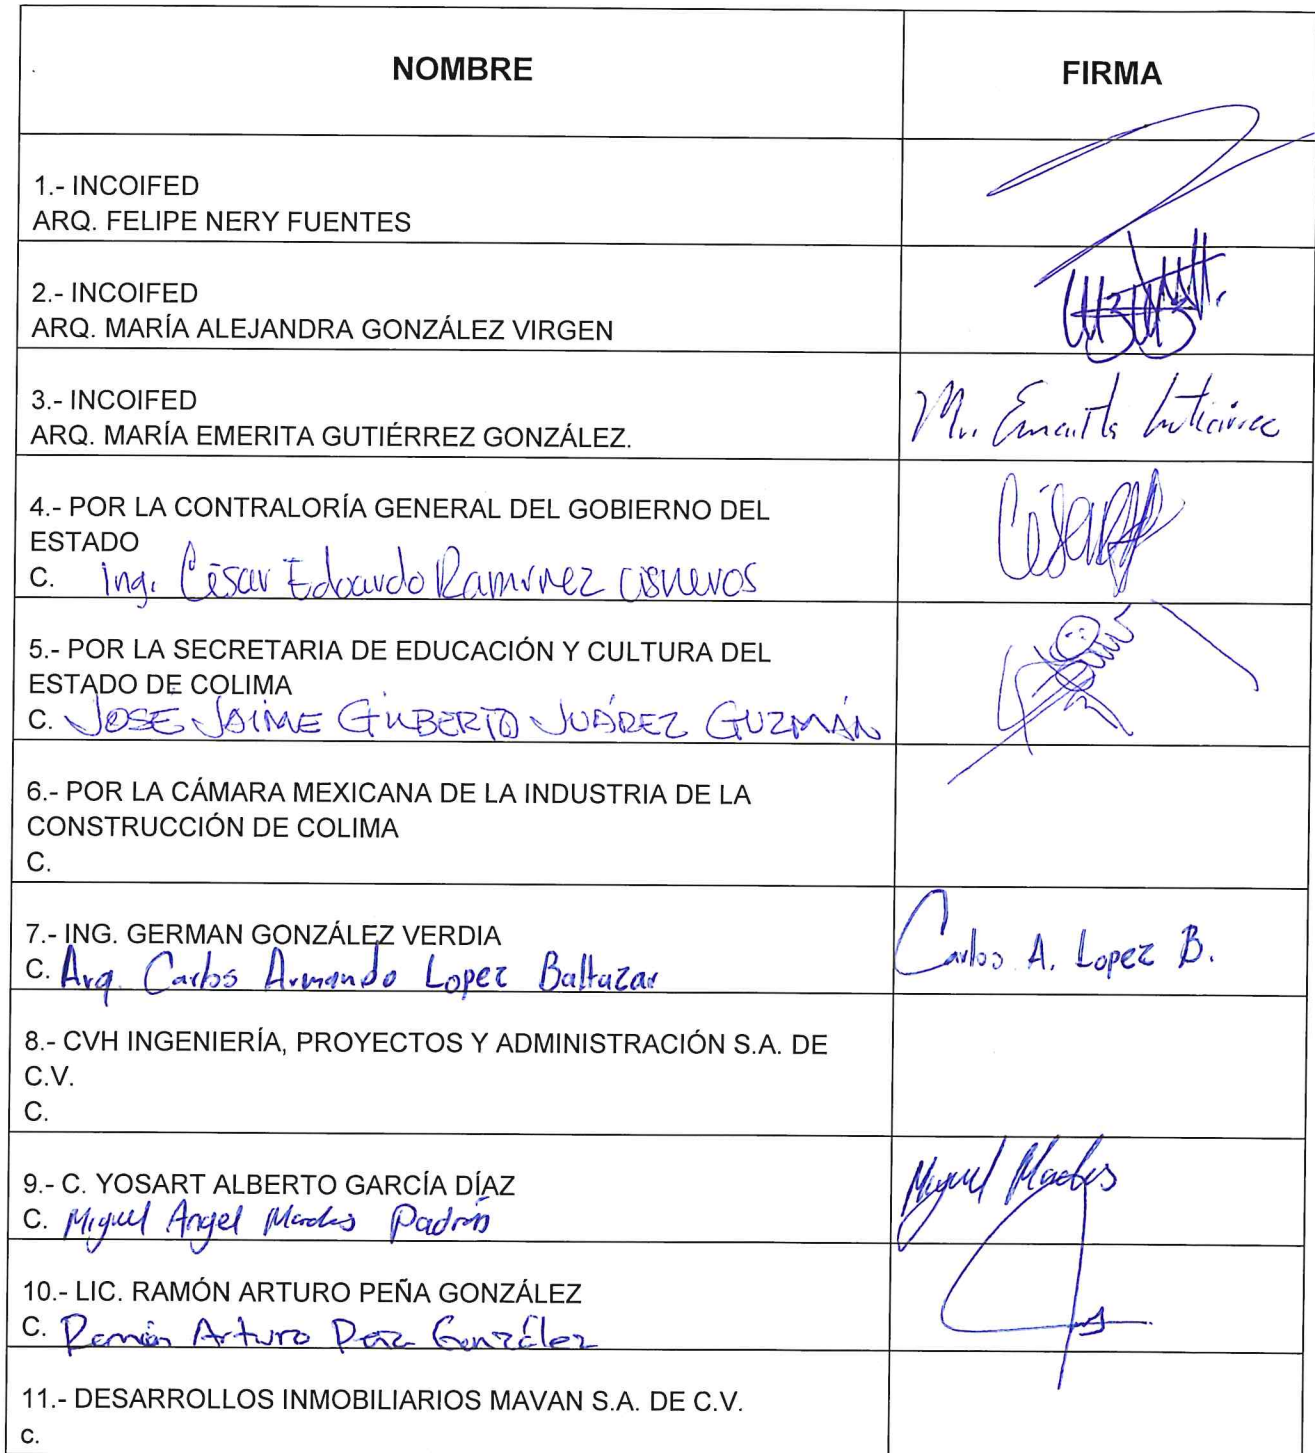 NOMBRE
FIRMA
1.- INCOIFED
ARQ. FELIPE NERY FUENTES
2.- INCOIFED
ARQ. MARÍA ALEJANDRA GONZÁLEZ VIRGEN
3.- INCOIFED
ARQ. MARÍA EMERITA GUTIÉRREZ GONZÁLEZ.
M. Emerita Gutiérrez
4.- POR LA CONTRALORÍA GENERAL DEL GOBIERNO DEL
ESTADO
C. Ing. César Eduardo Ramírez Cisneros
César
5.- POR LA SECRETARIA DE EDUCACIÓN Y CULTURA DEL
ESTADO DE COLIMA
C. JOSE JAIME GILBERTO JUÁREZ GUZMÁN
6.- POR LA CÁMARA MEXICANA DE LA INDUSTRIA DE LA
CONSTRUCCIÓN DE COLIMA
C.
7.- ING. GERMAN GONZÁLEZ VERDIA
C. Arq. Carlos Armando Lopez Baltazar
Carlos A. Lopez B.
8.- CVH INGENIERÍA, PROYECTOS Y ADMINISTRACIÓN S.A. DE
C.V.
C.
9.- C. YOSART ALBERTO GARCÍA DÍAZ
C. Miguel Angel Padrón
Miguel
10.- LIC. RAMÓN ARTURO PEÑA GONZÁLEZ
C. Ramón Arturo Peña González
11.- DESARROLLOS INMOBILIARIOS MAVAN S.A. DE C.V.
c.